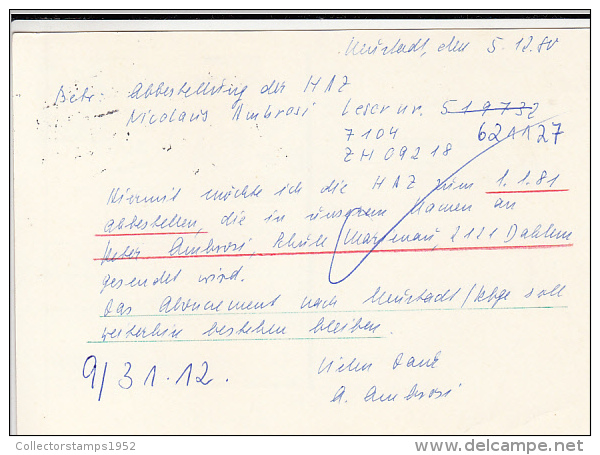 Neustadt, den 5.12.80
Betr. Abbestellung der HAZ
Nicolaus Ambrosi Leser nr. 519732
7104 621127
ZH 09218
Hiermit möchte ich die HAZ zum 1.1.81
abbestellen, die in unserem Namen an
Peter Ambrosi, 2121 Dahlem
gesendet wird.
Das Abonnement nach Neustadt/ soll
weiterhin bestehen bleiben.
9/31.12.
Vielen Dank
A. Ambrosi
Collectorstamps1952
www.delcampe.net